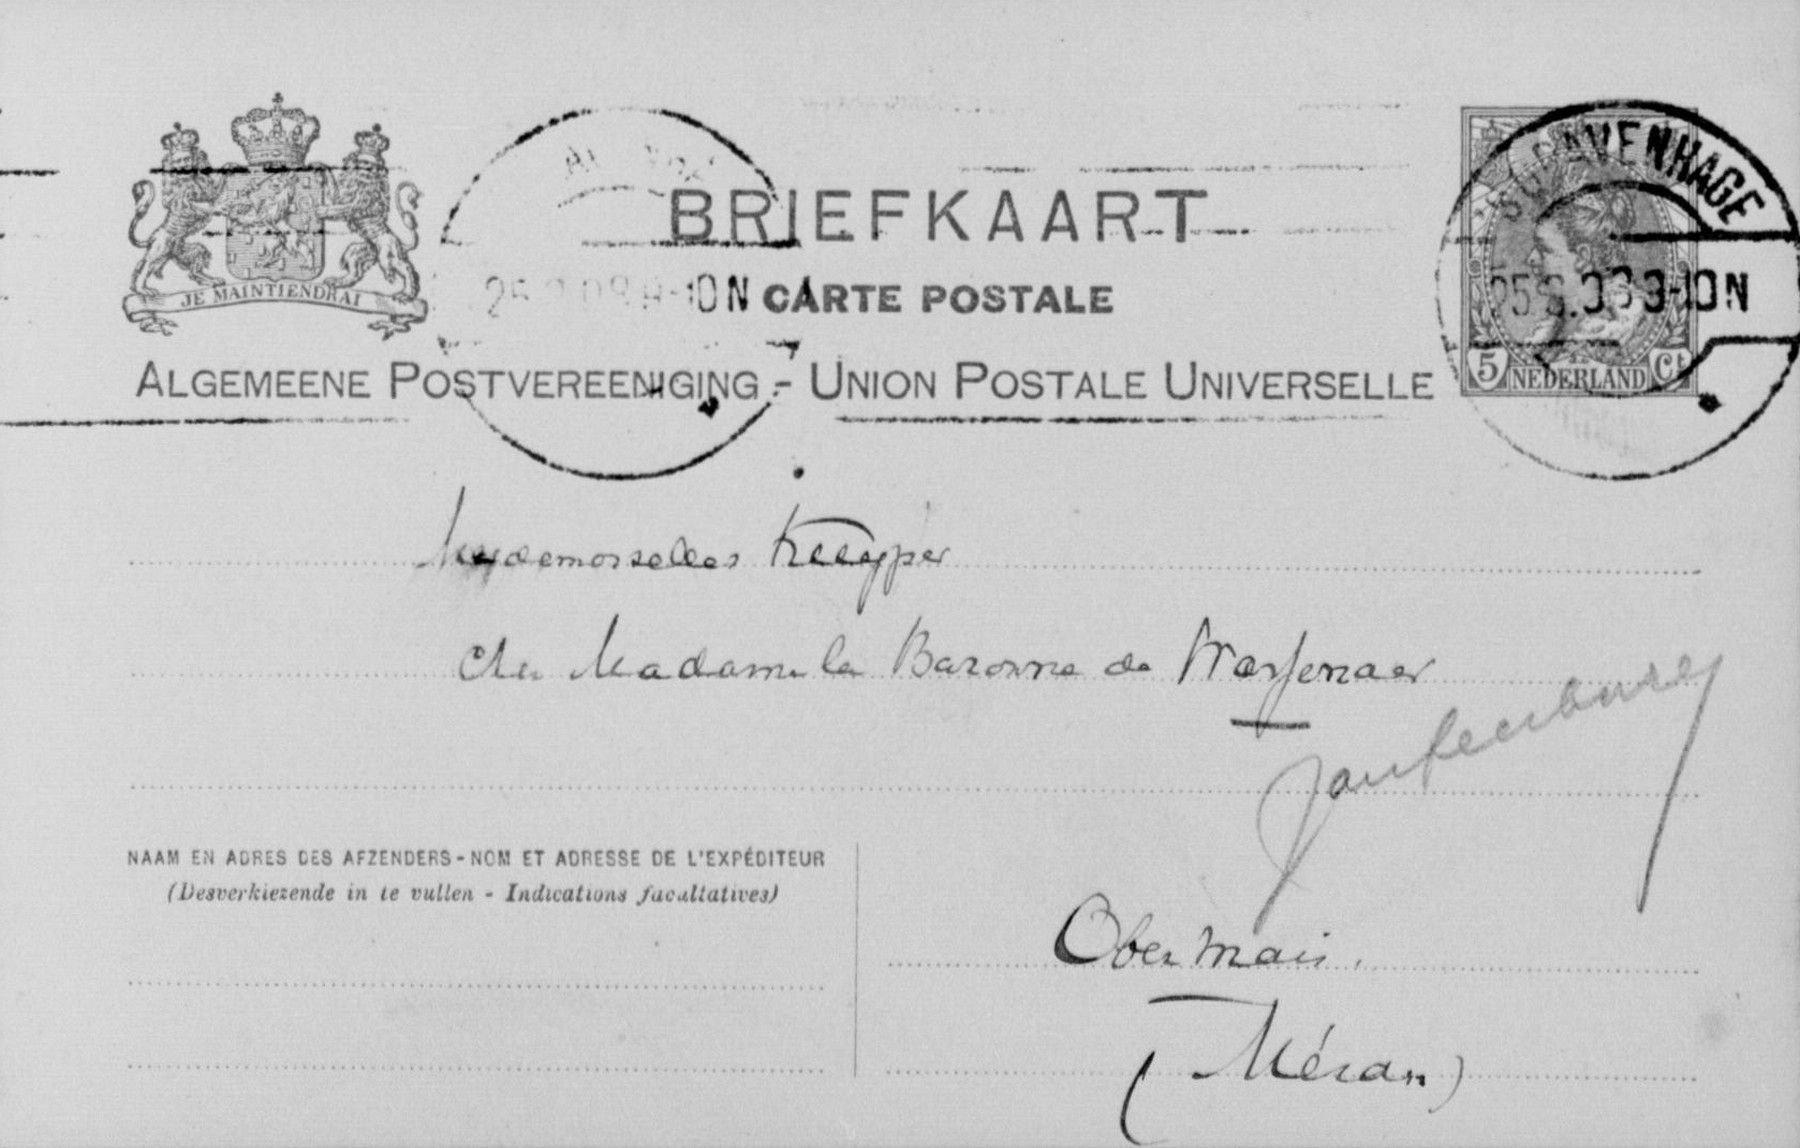 JE MAINTIENDRAI
BRIEFKAART
CARTE POSTALE
ALGEMEENE POSTVEREENIGING - UNION POSTALE UNIVERSELLE
'S GRAVENHAGE
9-10N
5 NEDERLAND Ct
Mesdemoiselles Kuyper
chez Madame la Baronne de Wassenaer
NAAM EN ADRES DES AFZENDERS - NOM ET ADRESSE DE L'EXPÉDITEUR
(Desverkiezende in te vullen - Indications facultatives)
Ober Mais.
(Méran)